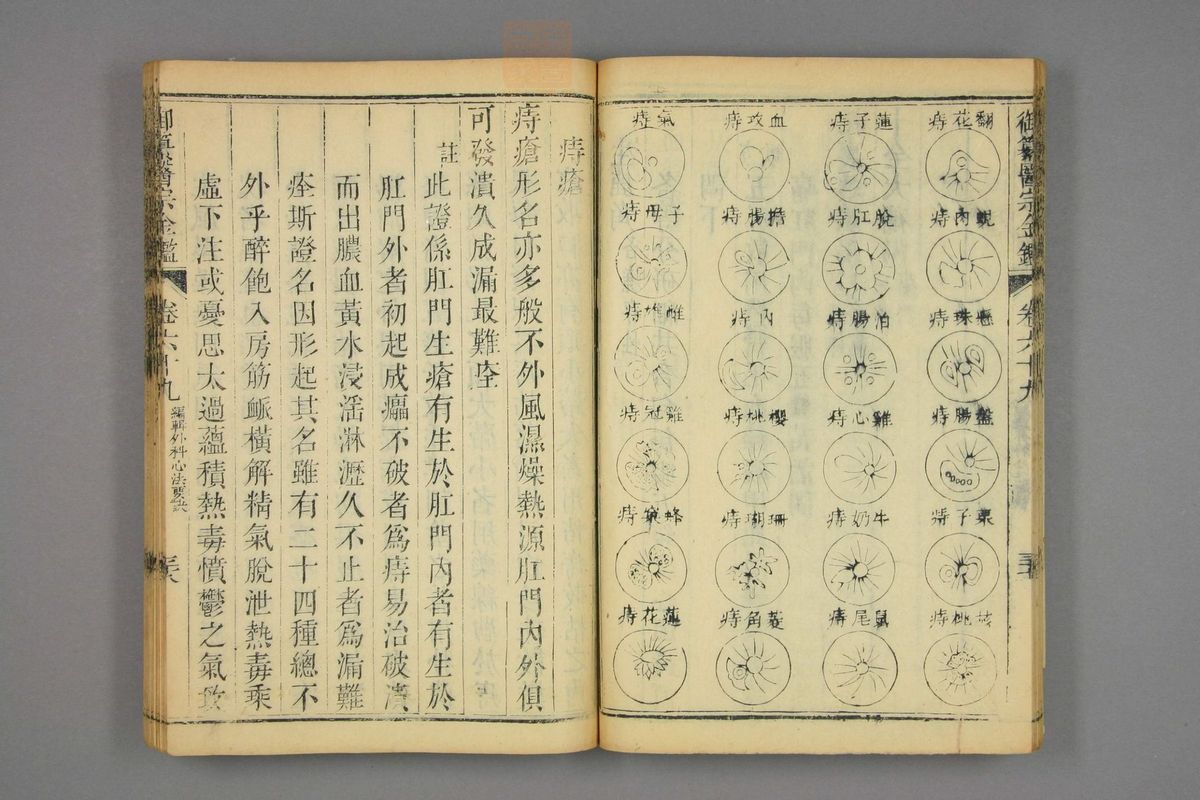 御纂醫宗金鑑
卷六十九
翻花痔
蓮子痔
血攻痔
氣痔
蜆肉痔
脫肛痔
擔腸痔
子母痔
懸珠痔
泊腸痔
內痔
雌雄痔
盤腸痔
雞心痔
櫻桃痔
雞冠痔
栗子痔
牛奶痔
珊瑚痔
蜂窠痔
核桃痔
鼠尾痔
菱角痔
蓮花痔
痔瘡
痔瘡形名亦多般不外風濕燥熱源肛門內外俱
可發潰久成漏最難痊
註
此證係肛門生瘡有生於肛門內者有生於
肛門外者初起成㿈不破者爲痔易治破潰
而出膿血黃水浸淫淋瀝久不止者爲漏難
痊斯證名因形起其名雖有二十四種總不
外乎醉飽入房筋脈橫解精氣脫泄熱毒乘
虛下注或憂思太過蘊積熱毒憤鬱之氣致
御纂醫宗金鑑
卷六十九
編輯外科心法要訣
三六